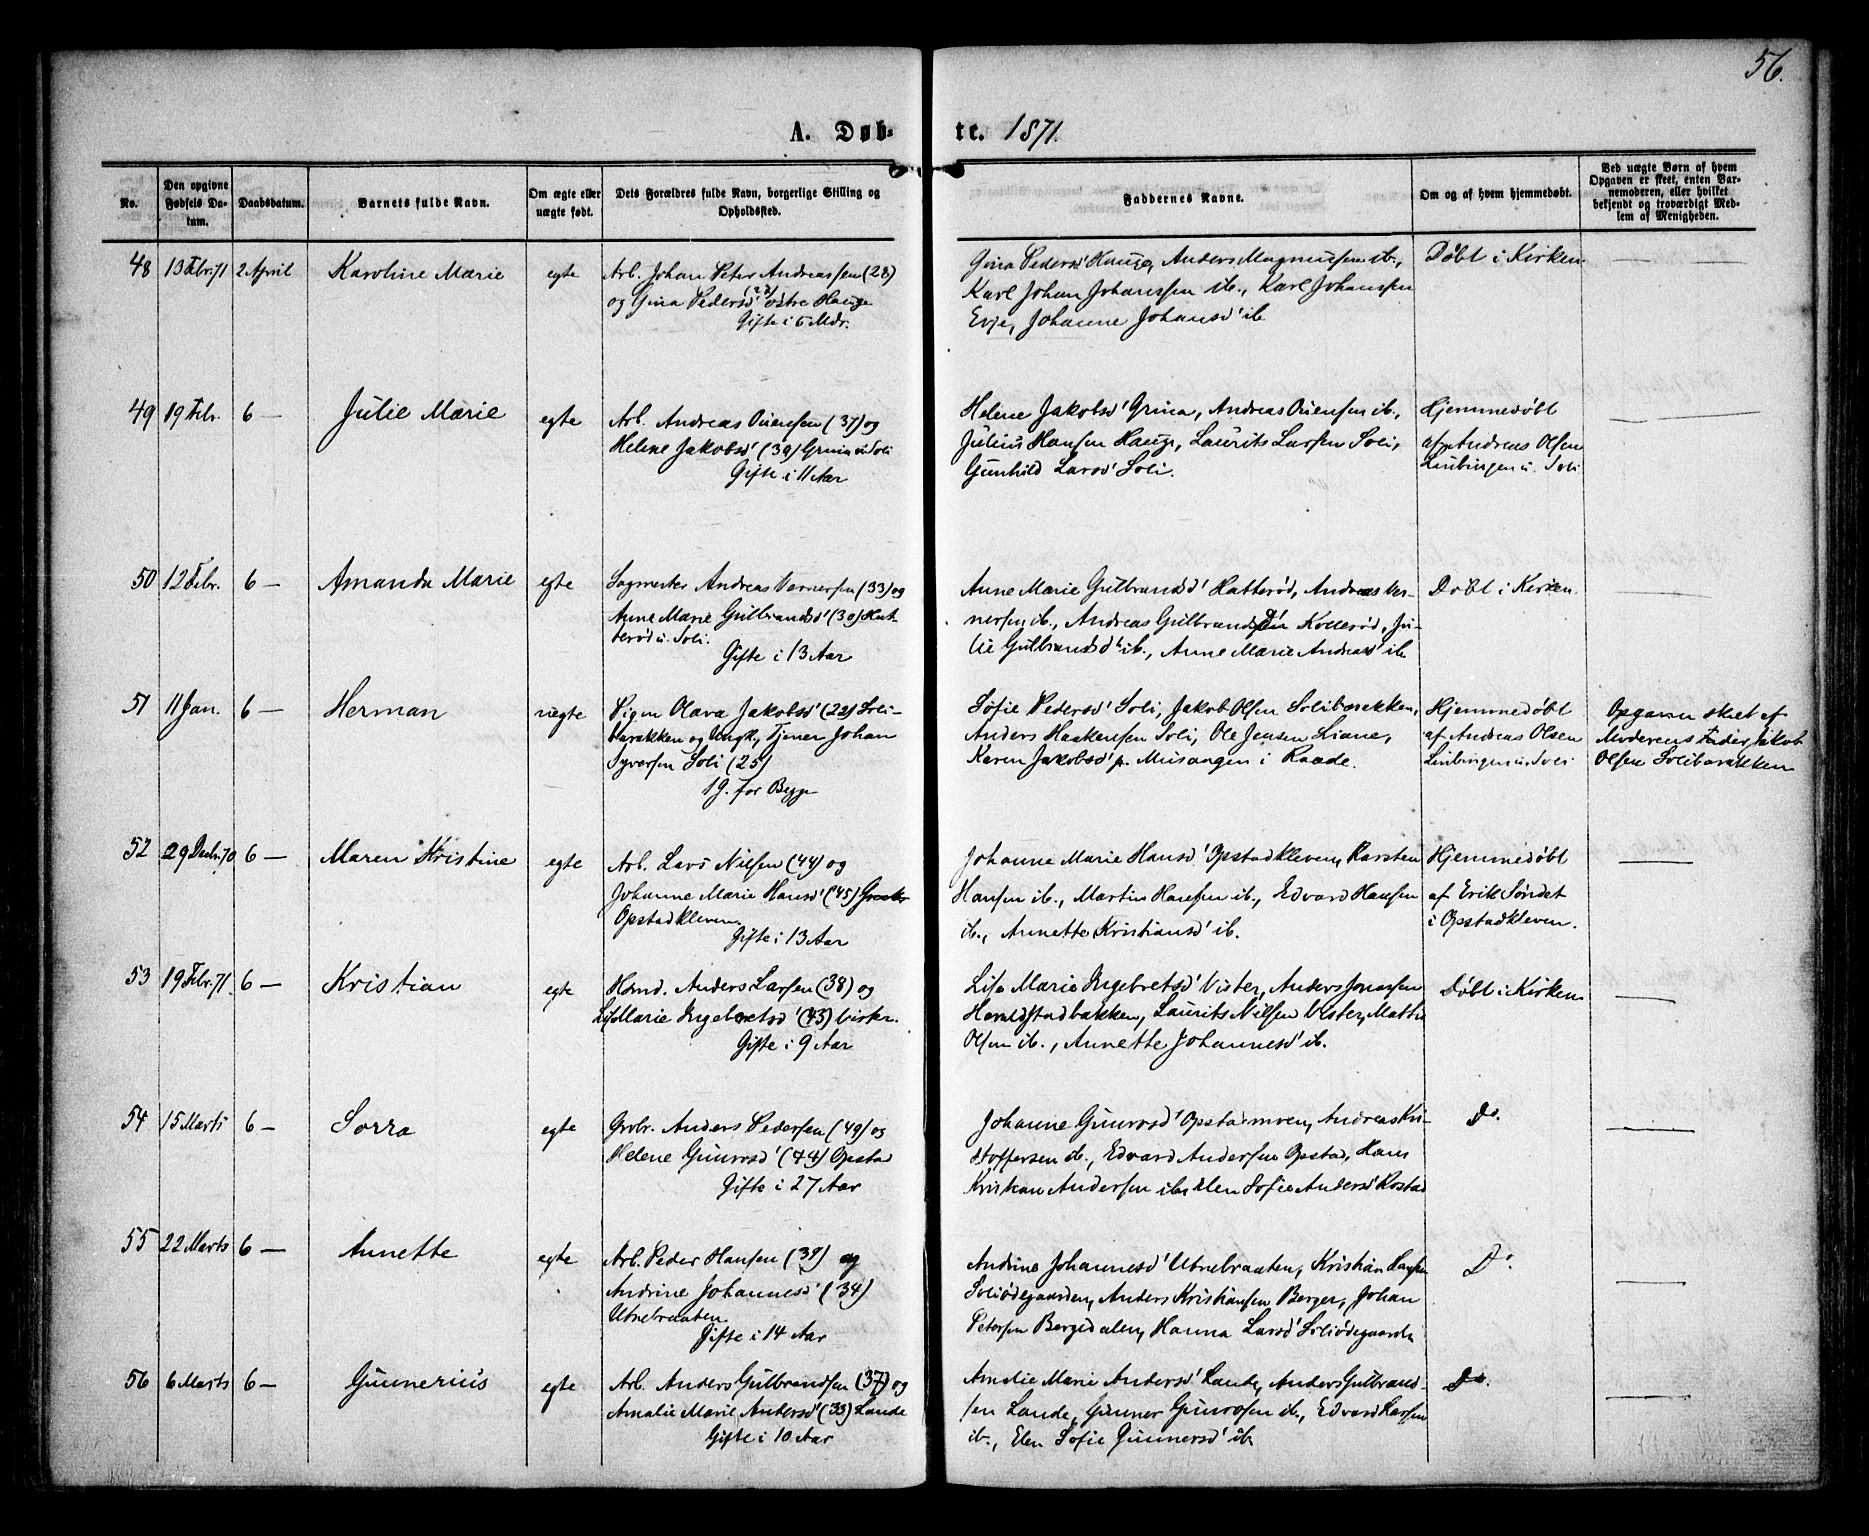 56.
A. Døb- te. 1871.
No.
Den opgivne Fødsels Datum.
Daabsdatum.
Barnets fulde Navn.
Om ægte eller uægte født.
Dets Forældres fulde Navn, borgerlige Stilling og Opholdssted.
Faddernes Navne.
Om og af hvem hjemmedøbt.
Ved uægte Børn af hvem Opgaven er skeet, enten Barnemoderen, eller hvilket bekjendt og troværdigt Medlem af Menigheden.
48 13 Febr. 71 2 April Karoline Marie egte
Arb. Johan Peter Andreassen (28)
og Gina Pedersd' (22) østre Hauge
Gifte i 5 Mdr.
Gina Pedersd' Hauge, Anders Magnussen ib.,
Karl Johan Johanssen ib., Karl Johanssen
Evje, Johanne Johansd' ib.
Døbt i Kirken
49 19 Febr. 6 — Julie Marie egte
Arb. Andreas Oiensen (37) og
Helene Jakobsd' (39) Grina u. Soli
Gifte i 11 Aar
Helene Jakobsd' Grina, Andreas Oiensen ib.,
Julius Hansen Hauge, Laurits Larsen Soli,
Gunhild Larsd' Soli.
Hjemmedøbt
af Andreas Olsen
Linbingen u. Soli
50 12 Febr. 6 — Amanda Marie egte
Sagmester Andreas Vernersen (33) og
Anne Marie Gulbrandsd' (30) Hat-
terød u. Soli.
Gifte i 13 Aar
Anne Marie Gulbrandsd' Hatterød, Andreas Ver-
nersen ib., Andreas Gulbrandsen Kollerød, Ju-
lie Gulbrandsd' ib., Anne Marie Andreasd' ib.
Døbt i Kirken
51 11 Jan. 6 — Herman uegte
Pigen Olava Jakobsd' (22) Soli-
barakken og Ungk., Tjener Johan
Syversen Soli (25)
1 G. for Begge
Sofie Pedersd' Soli, Jakob Olsen Solibarakken,
Anders Haakensen Soli, Ole Jensen Liane,
Karen Jakobsd' p. Missingen i Raade.
Hjemmedøbt
af Andreas Olsen
Linbingen u. Soli
Opgaven skeet af
Moderens Fader Jakob
Olsen Solibarakken
52 29 Decbr. 70 6 — Maren Kristine egte
Arb. Lars Nilsen (44) og
Johanne Marie Hansd' (45)
Opstadkleven
Gifte i 13 Aar
Johanne Marie Hansd' Opstadkleven, Karsten
Hansen ib., Martin Hansen ib., Edvard Hansen
ib., Annette Kristiansd' ib.
Hjemmedøbt
af Erik Søndst
i Opstadkleven.
53 19 Febr. 71 6 — Kristian egte
Hsmd. Anders Larsen (38) og
Lise Marie Ingebretsd' (43) Vister.
Gifte i 9 Aar
Lise Marie Ingebretsd' Vister, Anders Jonassen
Haraldstadbakken, Laurits Nilsen Vister, Mathis
Olsen ib., Annette Johannesd' ib.
Døbt i Kirken
54 15 Marts 6 — Sorra egte
Grbr. Anders Pedersen (49) og
Helene Gunrosd' (44) Opstad
Gifte i 27 Aar
Johanne Gunrosd' Opstadmoen, Andreas Kri-
stoffersen ib., Edvard Andersen Opstad, Hans
Kristian Andersen ib., Elen Sofie Andersd' Rostad
Do.
55 22 Marts 6 — Annette egte
Arb. Peder Hansen (39) og
Andrine Johannesd' (34)
Utnebraaten
Gifte i 14 Aar
Andrine Johannesd' Utnebraaten, Kristian Hansen
Soliødegaarden, Anders Kristiansen Berger, Johan
Petersen Bergsdalen, Hanna Larsd' Soliødegaarden
Do.
56 6 Marts 6 — Gunnerius egte
Arb. Anders Gulbrandsen (37) og
Amalie Marie Andersd' (33) Lande
Gifte i 10 Aar
Amalie Marie Andersd' Lande, Anders Gulbrand-
sen Lande, Gunner Gunrosen ib., Edvard Larsen
ib., Elen Sofie Gunnersd' ib.
Do.